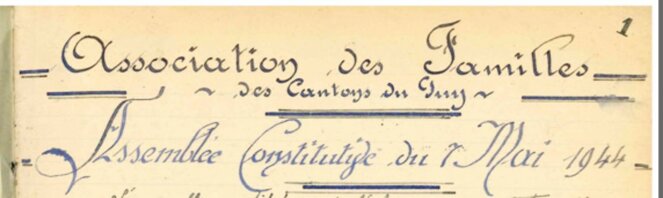 1
Association des Familles
~ des Cantons du Puy ~
Assemblée Constitutive du 7 Mai 1944